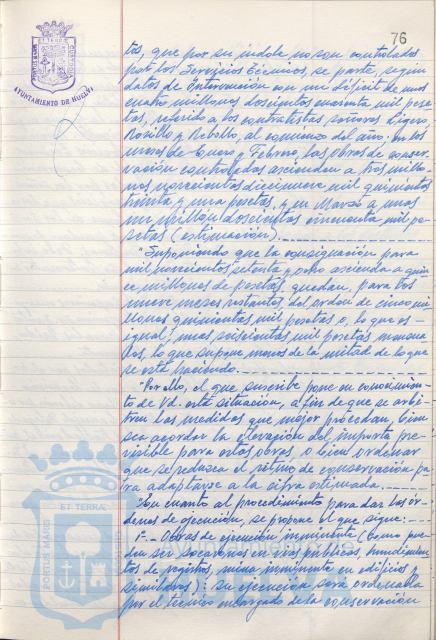 76
AYUNTAMIENTO DE HUELVA
tos, que por su índole no son controlados
por los Servicios Técnicos, se parte, según
datos de Intervención con un déficit de unos
cuatro millones doscientas cuarenta mil pese-
tas, referido a los contratistas señores Ligero,
Rosillo y Rebollo, al comienzo del año; en los
meses de Enero y Febrero, las obras de conser-
vación controladas ascienden a tres millo-
nes, novecientas diecinueve mil quinientas
treinta y una pesetas, y en Marzo a unos
un millón doscientas cincuenta mil pe-
setas (estimación).
"Suponiendo que la consignación para
mil novecientos setenta y ocho ascienda a quin-
ce millones de pesetas, quedan, para los
nueve meses restantes del orden de cinco mi-
llones quinientas mil pesetas o, lo que es
igual, unas seiscientas mil pesetas mensua-
les, lo que supone menos de la mitad de lo que
se está haciendo.
"Por ello, el que suscribe pone en conocimien-
to de Vd. esta situación, a fin de que se arbi-
tren las medidas que mejor procedan, bien
sea acordar la elevación del importe pre-
visible para estas obras, o bien ordenar
que se reduzca el ritmo de conservación pa-
ra adaptarse a la cifra estimada.
"En cuanto al procedimiento para dar las ór-
denes de ejecución, se propone el que sigue:
1º.- Obras de ejecución inminente (como pue-
den ser socavones en vías públicas, hundimien-
tos de registros, ruina inminente en edificios y
similares): su ejecución será ordenada
por el técnico encargado de la conservación
ET TERRA
PORTUS MARIS
CUSTODIA